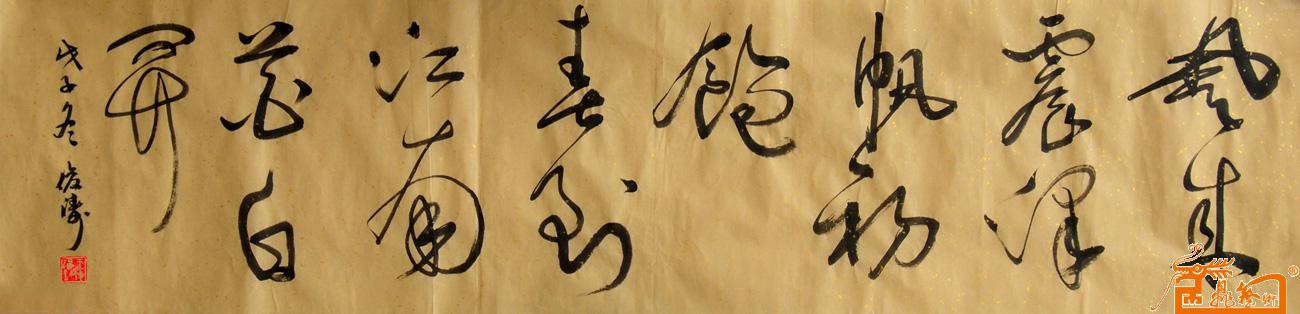 风来
震泽
帆初
饱
春到
江南
花自
开
戊子冬 俊涛